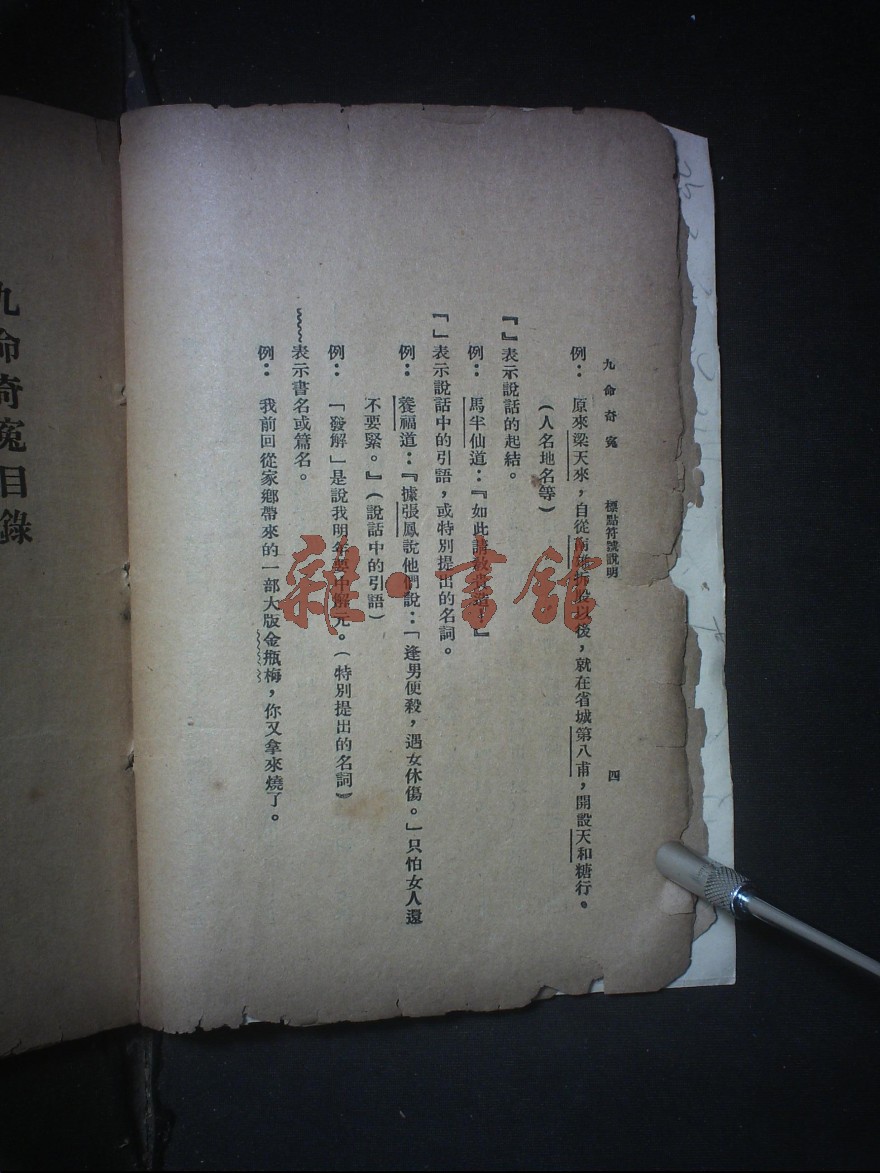 九命奇寃 標點符號說明 四
例：原來梁天來，自從南雄拆股以後，就在省城第八甫，開設天和糖行。
（人名地名等）
『』表示說話的起結。
例：馬半仙道：『如此請教貴造！』
「」表示說話中的引語，或特別提出的名詞。
例：養福道：『據張鳳說他們說：「逢男便殺，遇女休傷。」只怕女人還
不要緊。』（說話中的引語）
例：「發解」是說我明年要中解元。（特別提出的名詞）
﹏﹏表示書名或篇名。
例：我前回從家鄉帶來的一部大版金瓶梅，你又拿來燒了。
九命奇寃目錄
雜·書館